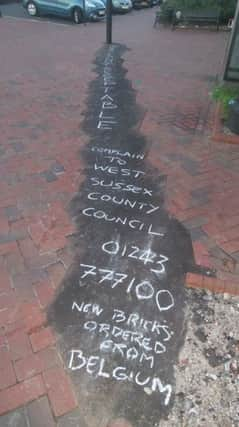 UNACCEPTABLE
COMPLAIN
TO
WEST
SUSSEX
COUNTY
COUNCIL
01243
777100
NEW BRICKS
ORDERED
FROM
BELGIUM